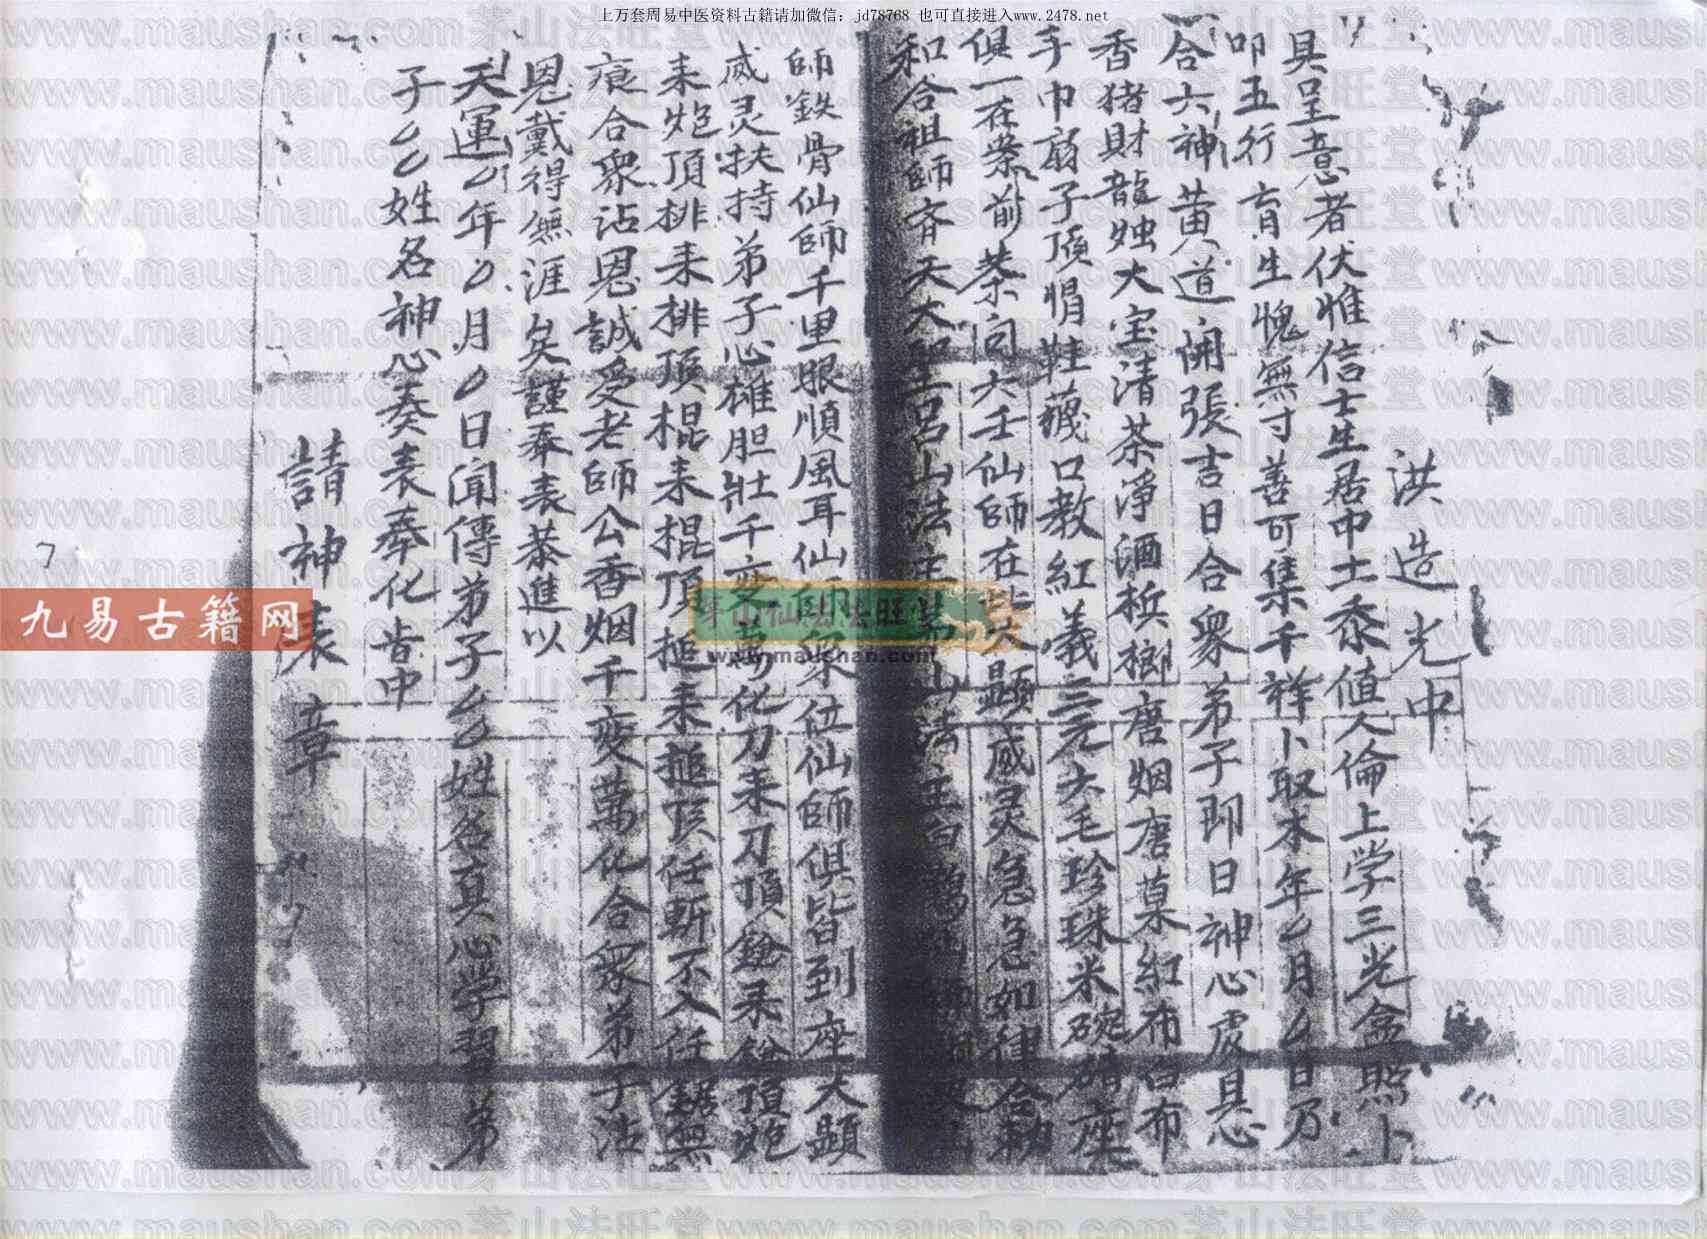 上万套周易中医资料古籍请加微信：jd78768 也可直接进入www.2478.net
洪造光中
具呈意者伏惟信士生居中土忝值人倫上学三光金照卜
叩五行育生愧無寸善可集千祥卜取本年厶月厶日乃
合六神黄道開張吉日合衆弟子即日神心虔具
香猪財龍烛大宝清茶淨酒梹榔唐烟唐菓紅布白布
手巾扇子頂帽鞋襪口教紅義三元六毛珍珠米碗碏座
俱一在案前恭向六壬仙師在上大顯威灵急急如律令勅
和合祖師齐天大聖呂山法主茅山法主白鶴仙師
師鉄骨仙師千里眼順風耳仙師衆位仙師俱皆到座大顕
威灵扶持弟子心雄胆壮千变萬化刀来刀頂鎗来鎗頂炮
来炮頂排来排頂棍来棍頂搥来搥頂任斬不入任鋸無
痕合衆沾恩誠受老師公香烟千变萬化合衆弟子沾
恩戴得無涯矣謹奉表恭進以
天運厶年厶月厶日聞傳弟子厶厶姓名真心学習弟
子厶厶姓名神心奏表奉化昔中
請神表章
7
九易古籍网
茅山仙法法旺堂
www.maushan.com